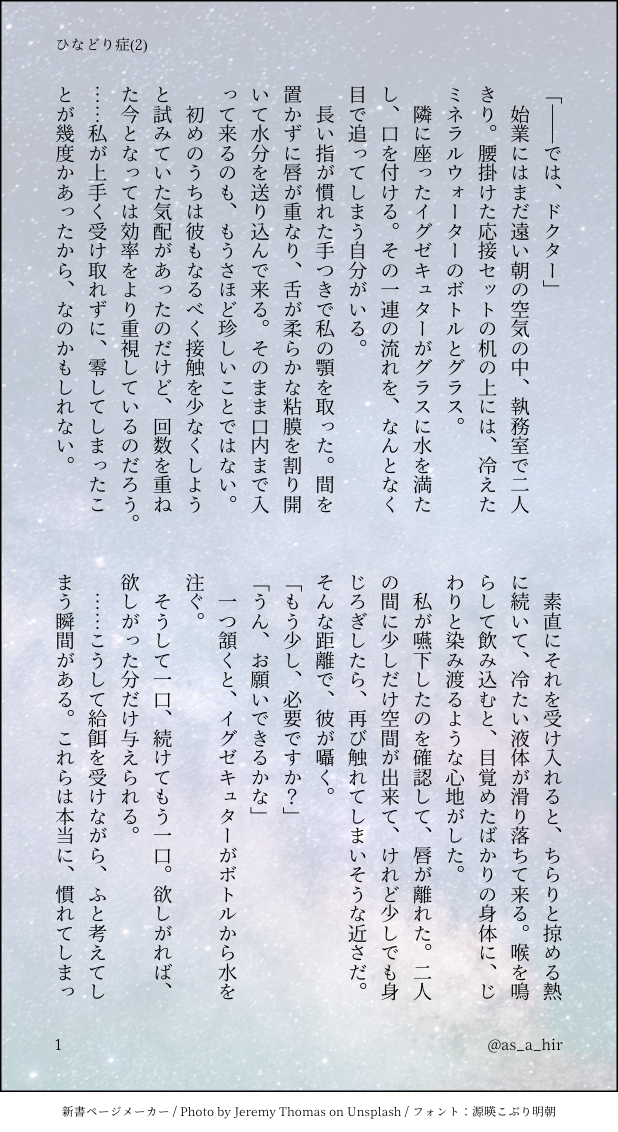 ひなどり症(2)
「――では、ドクター」
　始業にはまだ遠い朝の空気の中、執務室で二人
きり。腰掛けた応接セットの机の上には、冷えた
ミネラルウォーターのボトルとグラス。
　隣に座ったイグゼキュターがグラスに水を満た
し、口を付ける。その一連の流れを、なんとなく
目で追ってしまう自分がいる。
　長い指が慣れた手つきで私の顎を取った。間を
置かずに唇が重なり、舌が柔らかな粘膜を割り開
いて水分を送り込んで来る。そのまま口内まで入
って来るのも、もうさほど珍しいことではない。
　初めのうちは彼もなるべく接触を少なくしよう
と試みていた気配があったのだけど、回数を重ね
た今となっては効率をより重視しているのだろう。
……私が上手く受け取れずに、零してしまったこ
とが幾度かあったから、なのかもしれない。
　素直にそれを受け入れると、ちらりと掠める熱
に続いて、冷たい液体が滑り落ちて来る。喉を鳴
らして飲み込むと、目覚めたばかりの身体に、じ
わりと染み渡るような心地がした。
　私が嚥下したのを確認して、唇が離れた。二人
の間に少しだけ空間が出来て、けれど少しでも身
じろぎしたら、再び触れてしまいそうな近さだ。
そんな距離で、彼が囁く。
「もう少し、必要ですか？」
「うん、お願いできるかな」
　一つ頷くと、イグゼキュターがボトルから水を
注ぐ。
　そうして一口、続けてもう一口。欲しがれば、
欲しがった分だけ与えられる。
　……こうして給餌を受けながら、ふと考えてし
まう瞬間がある。これらは本当に、慣れてしまっ
1
@as_a_hir
新書ページメーカー / Photo by Jeremy Thomas on Unsplash / フォント：源暎こぶり明朝